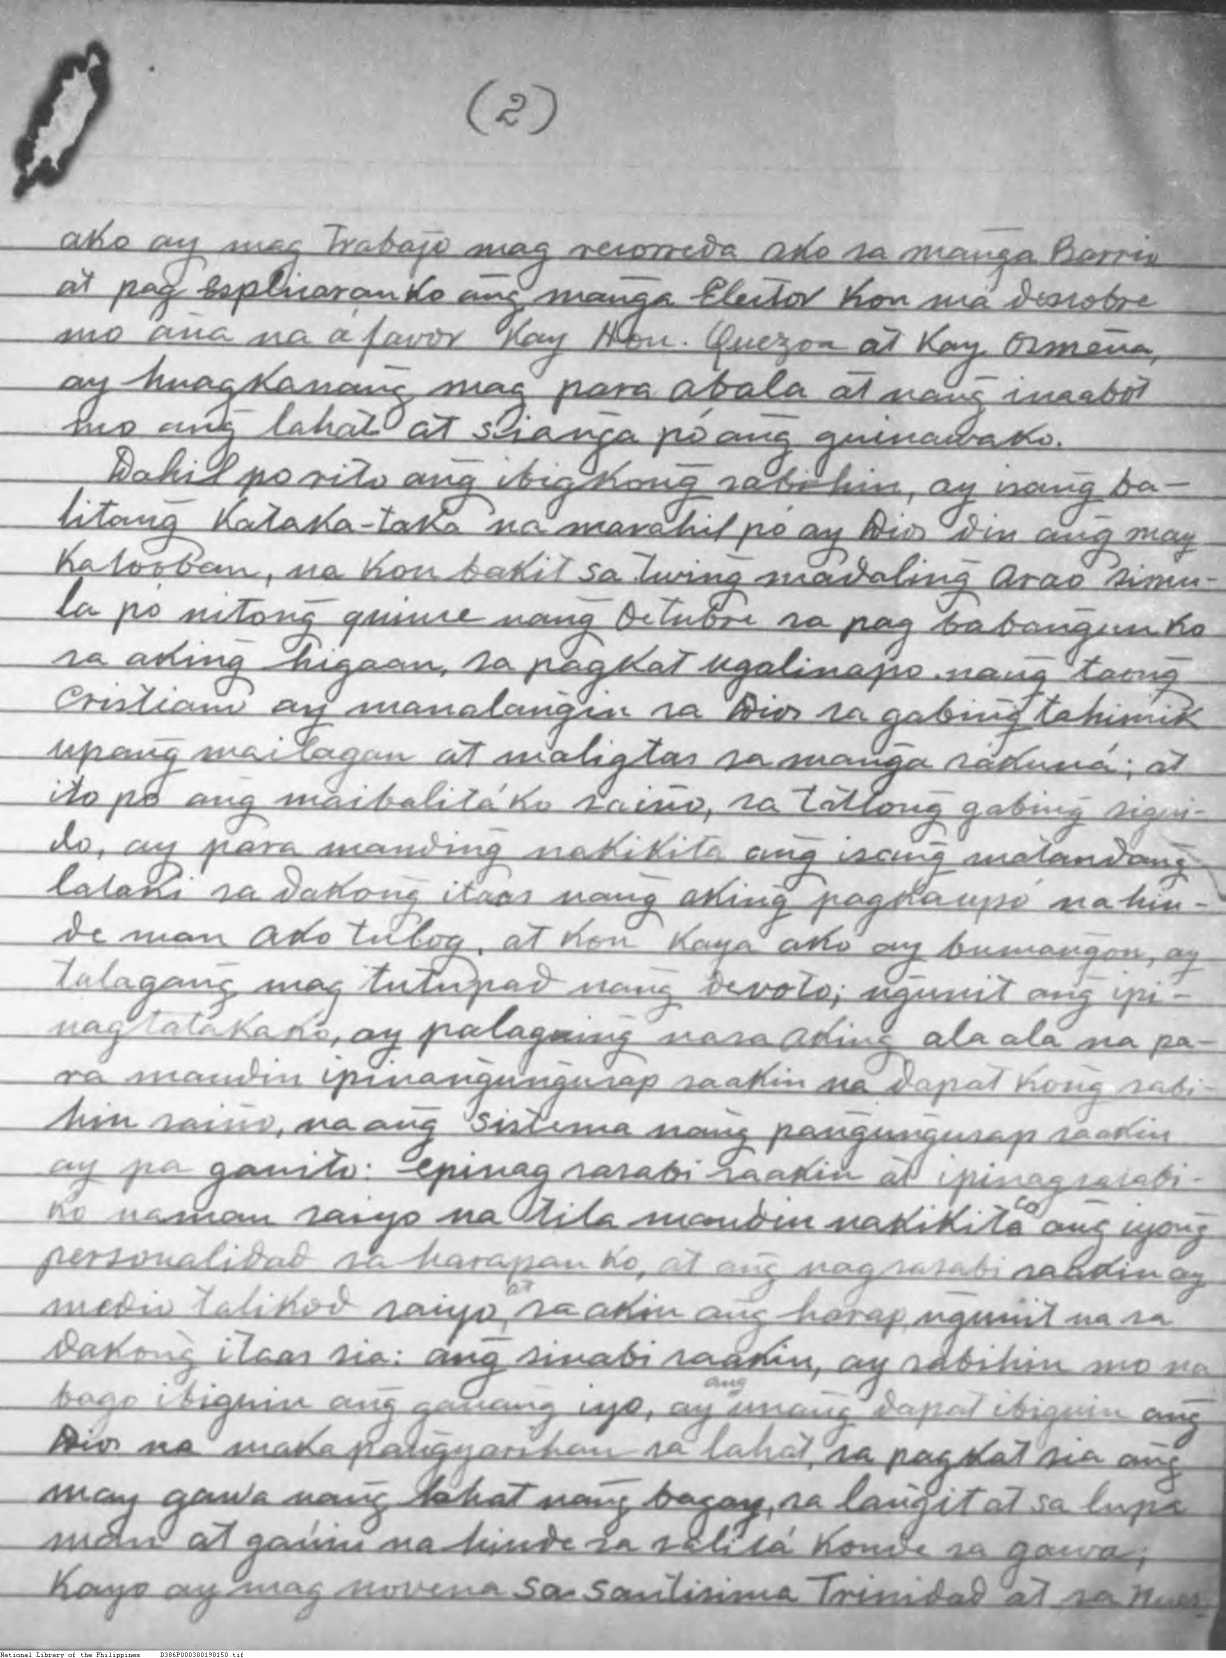 (2)
ako ay mag Trabajo mag recorreda ako sa mañga Barrio
at pag Esplicaran ko ang mañga Elector kon ma descobre
mo aña na á favor Kay Hon. Quezon at Kay Osmeña,
ay huag kanang mag para abala at nang inaabot
mo ang lahat at sianga pó ang guinawako.
Dahil po rito ang ibigkong sabihin, ay isang ba-
litang Kataka-taka na marahil pó ay Dios din ang may
Kalooban, na kon bakit sa twing madaling Arao simu-
la pó nitong quince nang Octubre sa pag babangun ko
sa aking higaan, sa pagkat ugalinapo nang taong
Cristiano ay manalangin sa Dios sa gabing tahimik
upang mailagan at maligtas sa mañga sakuná; at
ito po ang maibalitá ko saiño, sa tatlong gabing sigui-
do, ay para manding nakikita ang isang matandang
lalaki sa dakong itaas nang aking pagkaupó na hin-
de man ako tulog, at kon kaya ako ay bumangon, ay
talagang mag tutupad nang devoto; ngunit ang ipi-
nagtatakako, ay palaguing nasa aking ala ala na pa-
ra mandin ipinangungusap saakin na dapat kong sabi-
hin saiño, na ang sistema nang pangungusap saakin
ay pa ganito: epinag sasabi saakin at ipinagsasabi-
ko naman saiyo na tila mandin nakikita co ang iyong
personalidad sa harapan ko, at ang nagsasabi saakin ay
medio talikod saiyo, at sa akin ang harap ngunit na sa
dakong itaas sia: ang sinabi saakin, ay sabihin mo na
bago ibiguin ang ganang iyo, ay ang unang dapat ibiguin ang
Dios na maka pangyarihan sa lahat, sa pagkat sia ang
may gawa nang lahat nang bagay, sa langit at sa lupa
man at gawin na hinde sa salitá konde sa gawa;
Kayo ay mag novena sa Santisima Trinidad at sa Nues-
National Library of the Philippines D386P000380198150.tif